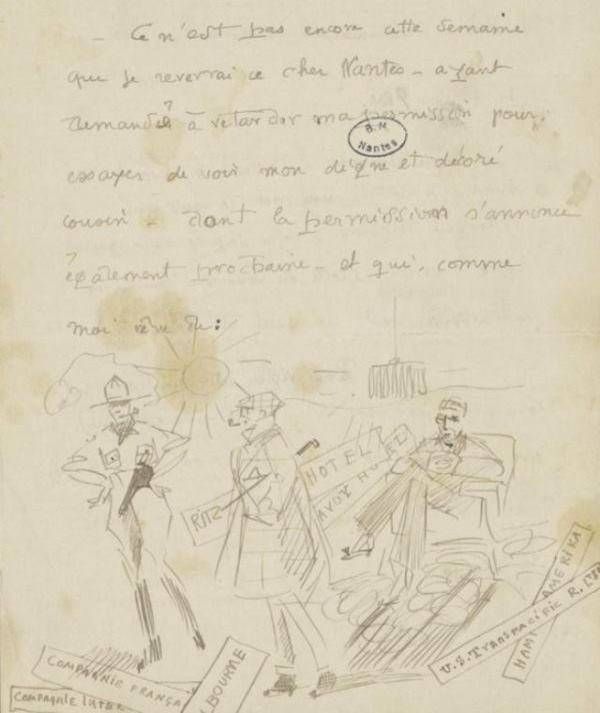 - Ce n'est pas encore cette semaine
que je reverrai ce cher Nantes - ayant
demandé à retarder ma permission pour
essayer de voir mon digne et décoré
cousin - dont la permission s'annonce
également prochaine - et qui, comme
moi rêve de :
B.M
Nantes
HOTEL
RITZ
AMERIKA
U.S. Transpacific R.
HAM
COMPAGNIE FRANÇA
COMPAGNIE INTER
LBOURNE